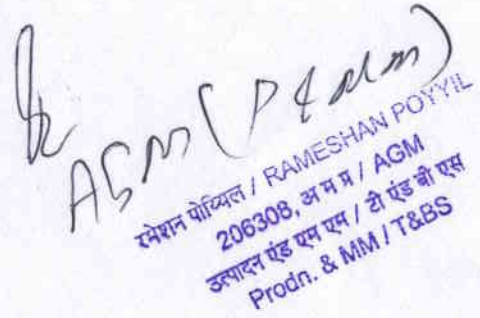 AGM (P & MM)
रमेशन पोय्यिल / RAMESHAN POYYIL
206308, अ म प्र / AGM
उत्पादन एंड एम एम / टी एंड बी एस
Prodn. & MM / T&BS